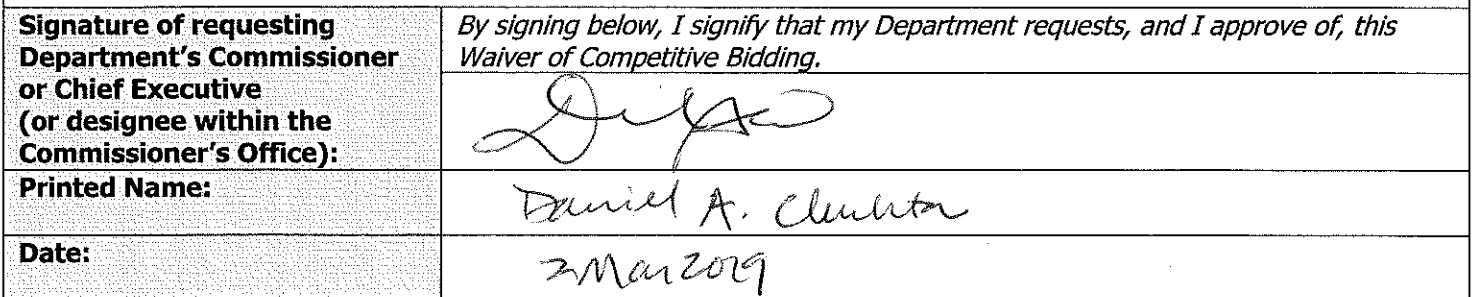 Signature of requesting
Department's Commissioner
or Chief Executive
(or designee within the
Commissioner's Office):
By signing below, I signify that my Department requests, and I approve of, this
Waiver of Competitive Bidding.
Printed Name:
Daniel A. Chuhta
Date:
2 Mar 2019